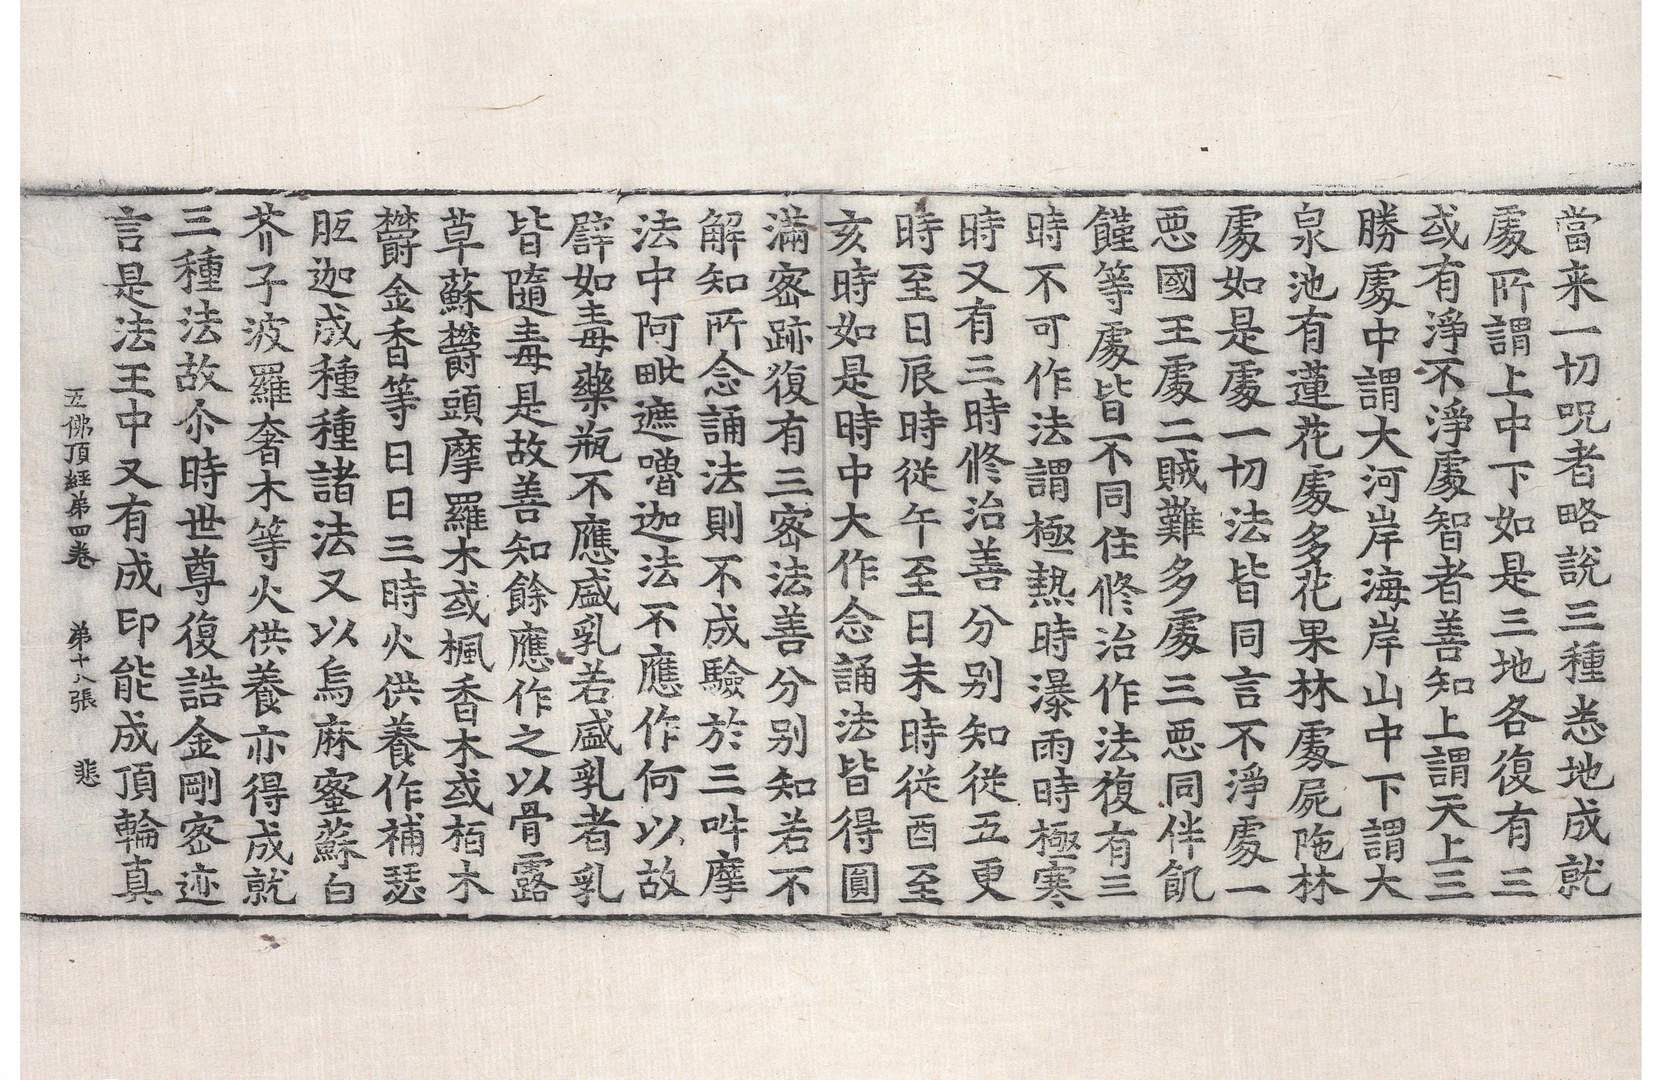 當来一切呪者略說三種悉地成就
處所謂上中下如是三地各復有三
或有淨不淨處智者善知上謂天上三
勝處中謂大河岸海岸山中下謂大
泉池有蓮花處多花果林處屍陁林
處如是處一切法皆同言不淨處一
惡國王處二賊難多處三惡同伴飢
饉等處皆不同住修治作法復有三
時不可作法謂極熱時瀑雨時極寒
時又有三時修治善分别知從五更
時至日辰時從午至日未時從酉至
亥時如是時中大作念誦法皆得圓
滿密跡復有三密法善分别知若不
解知所念誦法則不成驗於三吽摩
法中阿毗遮嚕迦法不應作何以故
譬如毒藥瓶不應盛乳若盛乳者乳
皆隨毒是故善知餘應作之以骨露
草蘇欝頭摩羅木或楓香木或栢木
欝金香等日日三時火供養作補瑟
胝迦成種種諸法又以烏麻蜜蘇白
芥子波羅奢木等火供養亦得成就
三種法故尒時世尊復誥金剛密迹
言是法王中又有成印能成頂輪真
五佛頂經第四卷 第十八張 悲